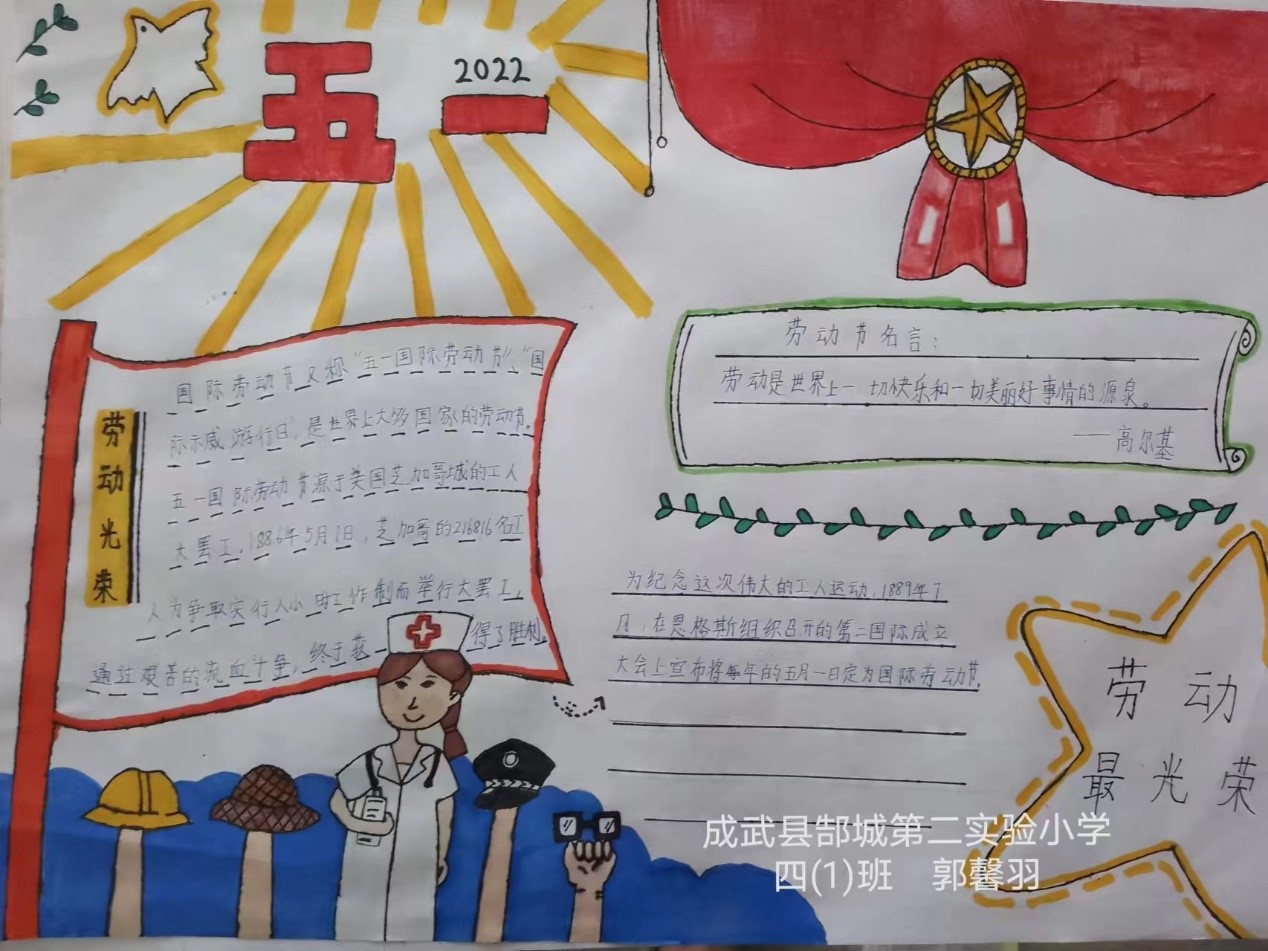 五一
2022
劳动光荣
国际劳动节又称“五一国际劳动节”、“国
际示威游行日”，是世界上大多国家的劳动节。
五一国际劳动节源于美国芝加哥城的工人
大罢工，1886年5月1日，芝加哥的216816名工
人为争取实行八小时工作制而举行大罢工，
通过艰苦的流血斗争，终于获得了胜利。
劳动节名言：
劳动是世界上一切快乐和一切美丽好事情的源泉。
——高尔基
为纪念这次伟大的工人运动，1889年7
月，在恩格斯组织召开的第二国际成立
大会上宣布将每年的五月一日定为国际劳动节。
劳动
最光荣
成武县郜城第二实验小学
四(1)班 郭馨羽